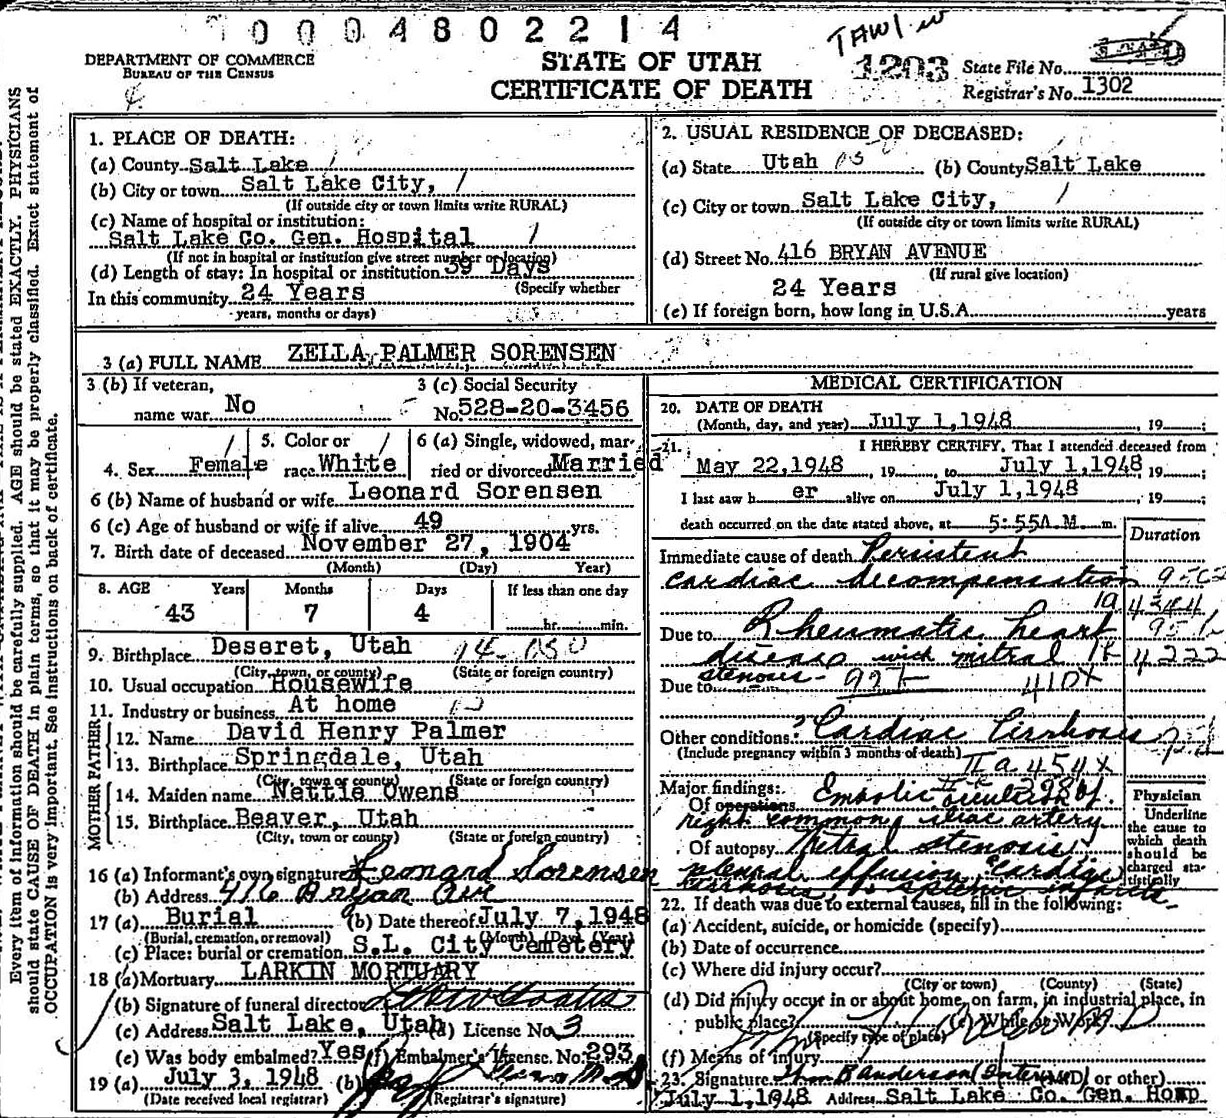 0004802214
TAW/w
DEPARTMENT OF COMMERCE
BUREAU OF THE CENSUS
STATE OF UTAH
CERTIFICATE OF DEATH
1203
State File No.
Registrar's No. 1302
Every item of information should be carefully supplied. AGE should be stated EXACTLY. PHYSICIANS
should state CAUSE OF DEATH in plain terms, so that it may be properly classified. Exact statement of
OCCUPATION is very important. See instructions on back of certificate.
1. PLACE OF DEATH:
(a) County Salt Lake
(b) City or town Salt Lake City,
(If outside city or town limits write RURAL)
(c) Name of hospital or institution:
Salt Lake Co. Gen. Hospital
(If not in hospital or institution give street number or location)
(d) Length of stay: In hospital or institution 39 Days
(Specify whether
In this community 24 Years
years, months or days)
2. USUAL RESIDENCE OF DECEASED:
(a) State Utah (b) County Salt Lake
(c) City or town Salt Lake City,
(If outside city or town limits write RURAL)
(d) Street No. 416 BRYAN AVENUE
(If rural give location)
24 Years
(e) If foreign born, how long in U.S.A. years
3 (a) FULL NAME ZELLA PALMER SORENSEN
3 (b) If veteran,
name war No
3 (c) Social Security
No. 528-20-3456
4. Sex Female
5. Color or
race White
6 (a) Single, widowed, mar-
ried or divorced Married
6 (b) Name of husband or wife Leonard Sorensen
6 (c) Age of husband or wife if alive 49 yrs.
7. Birth date of deceased November 27, 1904
(Month) (Day) Year)
8. AGE Years Months Days If less than one day
43 7 4 hr. min.
9. Birthplace Deseret, Utah
(City, town, or county) (State or foreign country)
10. Usual occupation Housewife
11. Industry or business At home
FATHER
12. Name David Henry Palmer
13. Birthplace Springdale, Utah
(City, town or county) (State or foreign country)
MOTHER
14. Maiden name Nettie Owens
15. Birthplace Beaver, Utah
(City, town or county) (State or foreign country)
16 (a) Informant's own signature Leonard Sorensen
(b) Address 416 Bryan Ave
17 (a) Burial (b) Date thereof July 7, 1948
(Burial, cremation, or removal) (Month) (Day) (Year)
(c) Place: burial or cremation S.L. City Cemetery
18 (a) Mortuary LARKIN MORTUARY
(b) Signature of funeral director
(c) Address Salt Lake, Utah (d) License No. 3
(e) Was body embalmed? Yes (f) Embalmer's License No. 293
19 (a) July 3, 1948 (b)
(Date received local registrar) (Registrar's signature)
MEDICAL CERTIFICATION
20. DATE OF DEATH
(Month, day, and year) July 1,1948, 19
21. I HEREBY CERTIFY, That I attended deceased from
May 22,1948 19 to July 1,1948 19
I last saw h er alive on July 1,1948, 19
death occurred on the date stated above, at 5:55A.M. m.
Duration
Immediate cause of death Persistent
cardiac decompensation
Due to Rheumatic heart
disease with mitral
stenosis
Due to 92b 410x
Other conditions: Cardiac Cirrhosis
(Include pregnancy within 3 months of death)
II a 454x
Major findings:
Of operations Embolic occlusion of
right common iliac artery
Of autopsy Mitral stenosis
pleural effusion Cardiac
cirrhosis splenic infarct
Physician
Underline
the cause to
which death
should be
charged sta-
tistically
22. If death was due to external causes, fill in the following:
(a) Accident, suicide, or homicide (specify)
(b) Date of occurrence
(c) Where did injury occur?
(City or town) (County) (State)
(d) Did injury occur in or about home, on farm, in industrial place, in
public place? (e) While at Work?
(Specify type of place)
(f) Means of injury
23. Signature Anderson (Intern) (MD) or other)
July 1,1948 Address Salt Lake Co. Gen. Hosp